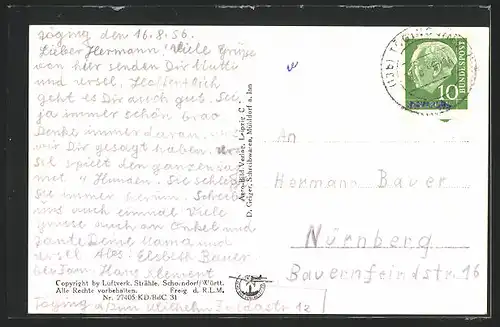 Töging den 16.8.56.
Lieber Hermann! Viele Grüße
von hier senden Dir Mutti
und Ursel. Hoffentlich
geht es Dir auch gut. Sei
ja immer schön brav
Denke immer daran, was
wir Dir gesagt haben. Ursel
spielt den ganzen Tag
mit Hunden. Sie schleppt
sie immer herum. Schreib
uns auch einmal Viele
Grüße auch an Onkel und
Tante Deine Mama und
Ursel Adr.: Elsbeth Bauer
bei Fam. Hans Klement
Copyright by Luftverk. Strähle, Schorndorf/Württ.
Alle Rechte vorbehalten. Freig d. R.L.M.
Nr. 27405 KD/BdC 31
Töging a. Inn Wilhelm
12
Aero-Bild-Verlag, Leipzig C
D. Geiger, Schreibwaren, Mühldorf a. Inn
DEUTSCHE BUNDESPOST
10
An
Hermann Bauer
Nürnberg
Bauernfeindstr 16